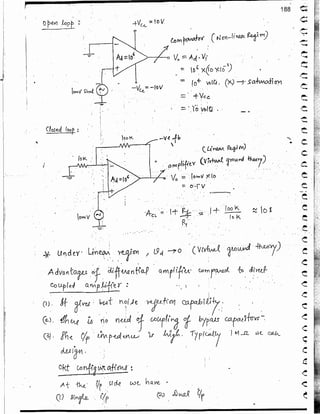 188
Open loop :
+Vcc = 10V
Comparator (Non-linear Regim)
Ad=10⁶
V₀ = Ad.Vi
= 10⁶ x(10 x10⁻³)
= 10⁴ volts. (x) → saturation
-Vcc = -10V
= +Vcc
= 10 volts.
Closed loop :
100K
-ve fb
(Linear Region)
10K
amplifier (Virtual ground theory)
Ad=10⁶
V₀ = 10mV x10
= 0.1V
10mV
ACL = 1+ Rf/R1 ≈ 1+ 100K/10K ≈ 10
* Under Linear region, Vd → 0 (Virtual ground theory)
Advantages of differential amplifier compared to direct
coupled amplifier :
(1). It gives best noise rejection capability.
(2). There is no need of coupling of bypass capacitors.
The i/p impedance is high. Typically 1MΩ we can
design.
ckt configurations :
At the i/p side we have -
(1) Single i/p (2) Dual i/p